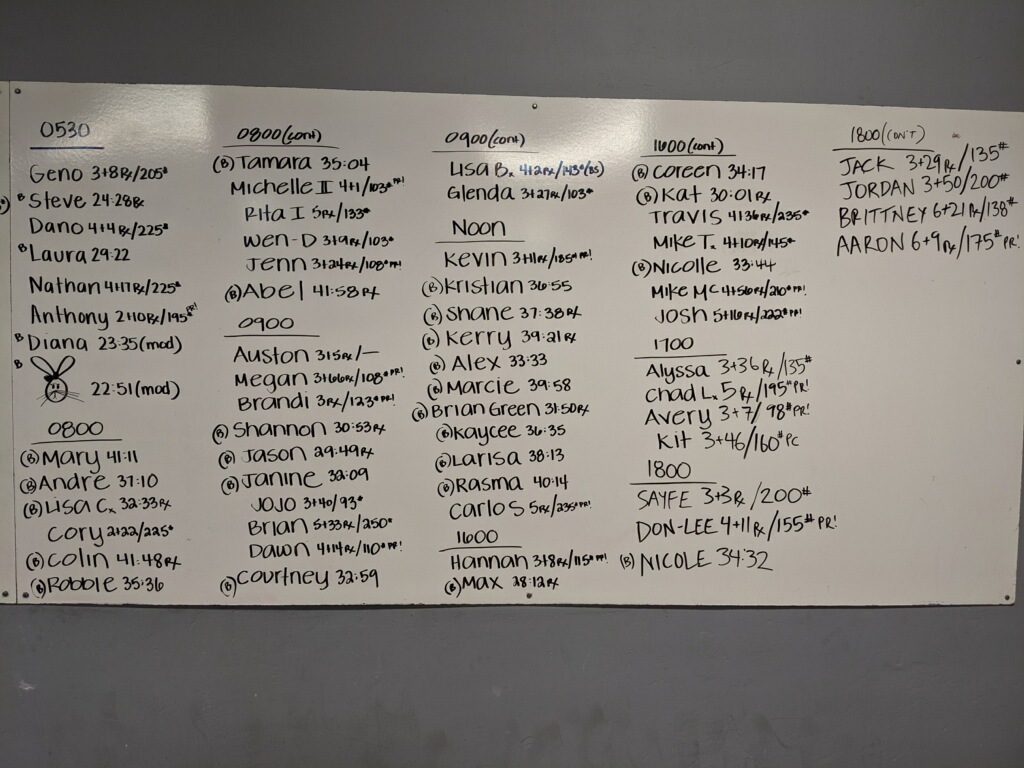 0530
Geno 3+8Rx/205#
(B) Steve 24:28Rx
Dano 4+4Rx/225#
(B) Laura 29:22
Nathan 4+17Rx/225#
Anthony 2+10Rx/195# PR!
(B) Diana 23:35(mod)
(B) 22:51(mod)
0800
(B) Mary 41:11
(B) Andre 37:10
(B) Lisa C. 32:33Rx
Cory 2+22/225#
(B) Colin 41:48Rx
(B) Robbie 35:36
0800(cont)
(B) Tamara 35:04
Michelle II 4+1/103# PR!
Rita I 5Rx/133#
Wen-D 3+9Rx/103#
Jenn 3+24Rx/108# PR!
(B) Abel 41:58Rx
0900
Auston 315Rx/—
Megan 3+66Rx/108# PR!
Brandi 3Rx/123# PR!
(B) Shannon 30:53Rx
(B) Jason 29:49Rx
(B) Janine 32:09
JoJo 3+40/93#
Brian 5+33Rx/250#
Dawn 4+14Rx/110# PR!
(B) Courtney 32:59
0900(cont)
Lisa B. 4+2Rx/143#(BS)
Glenda 3+27Rx/103#
Noon
Kevin 3+11Rx/185# PR!
(B) Kristian 36:55
(B) Shane 37:38Rx
(B) Kerry 39:21Rx
(B) Alex 33:33
(B) Marcie 39:58
(B) Brian Green 31:50Rx
(B) Kaycee 36:35
(B) Larisa 38:13
(B) Rasma 40:14
Carlos 5Rx/235# PR!
1600
Hannah 3+8Rx/115# PR!
(B) Max 28:12Rx
1600(cont)
(B) Coreen 34:17
(B) Kat 30:01Rx
Travis 4+36Rx/235#
Mike T. 4+10Rx/145#
(B) Nicolle 33:44
Mike Mc 4+56Rx/210# PR!
Josh 5+16Rx/222# PR!
1700
Alyssa 3+36Rx/135#
Chad L. 5Rx/195# PR!
Avery 3+7/98# PR!
Kit 3+46/160# PC
1800
SAYFE 3+3Rx/200#
DON-LEE 4+11Rx/155# PR!
(B) NICOLE 34:32
1800(CON'T)
JACK 3+29Rx/135#
JORDAN 3+50/200#
BRITTNEY 6+21Rx/138#
AARON 6+9Rx/175# PR!